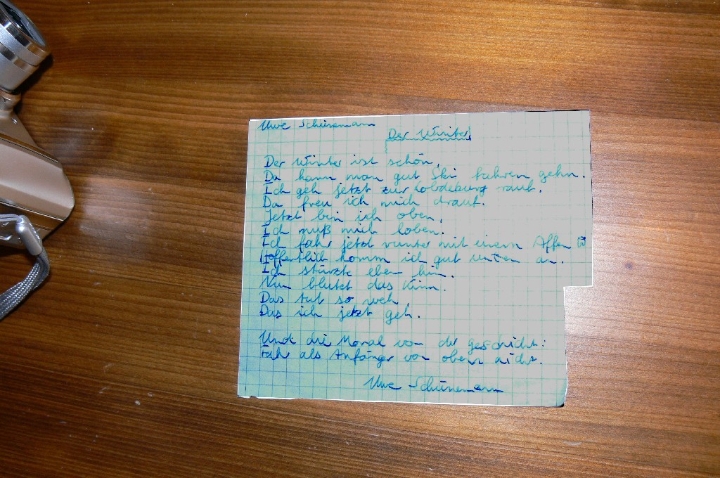 Uwe Schünemann
Der Winter
Der Winter ist schön,
Da kann man gut Ski fahren gehn.
Ich geh jetzt zur Lobdeburg rauf.
Da freu ich mich drauf.
Jetzt bin ich oben,
Ich muß mich loben.
Ich fahr jetzt runter mit einem Affen
Hoffentlich komm ich gut unten an.
Ich stürzte eben hin.
Nun blutet das Kinn.
Das tut so weh
Das ich jetzt geh.
Und die Moral von der geschicht:
Fahr als Anfänger von oben nicht.
Uwe Schünemann